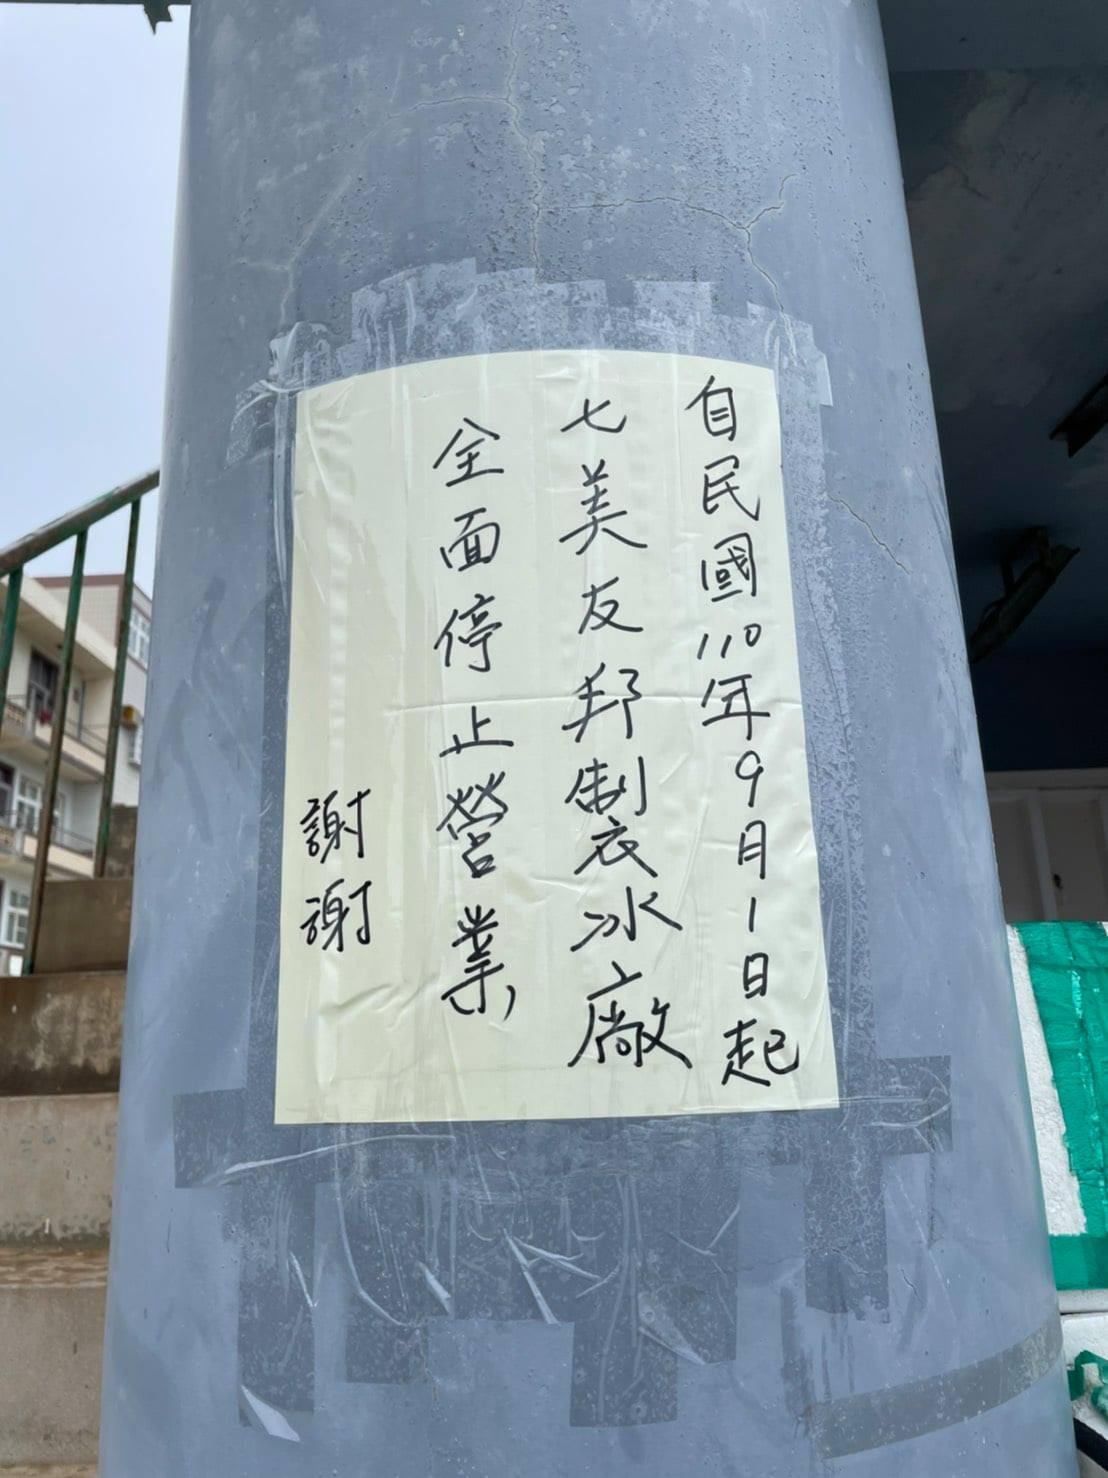 自民國110年9月1日起
七美友邦製冰廠
全面停止營業
謝謝